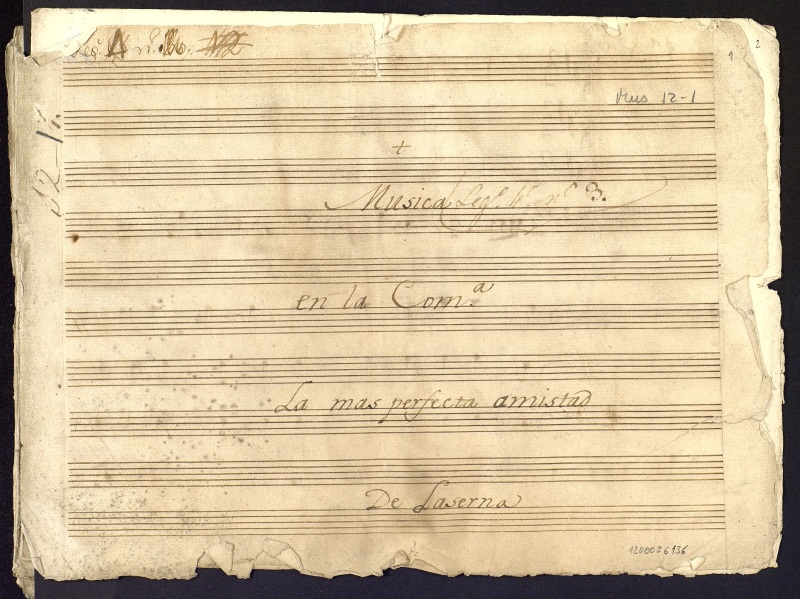 Leg.º n.º 16. 12
1 2
Mus 12-1
12-1
+
Musica Leg.º n.º 3.
en la Com.ª
La mas perfecta amistad
De Laserna
1200026136